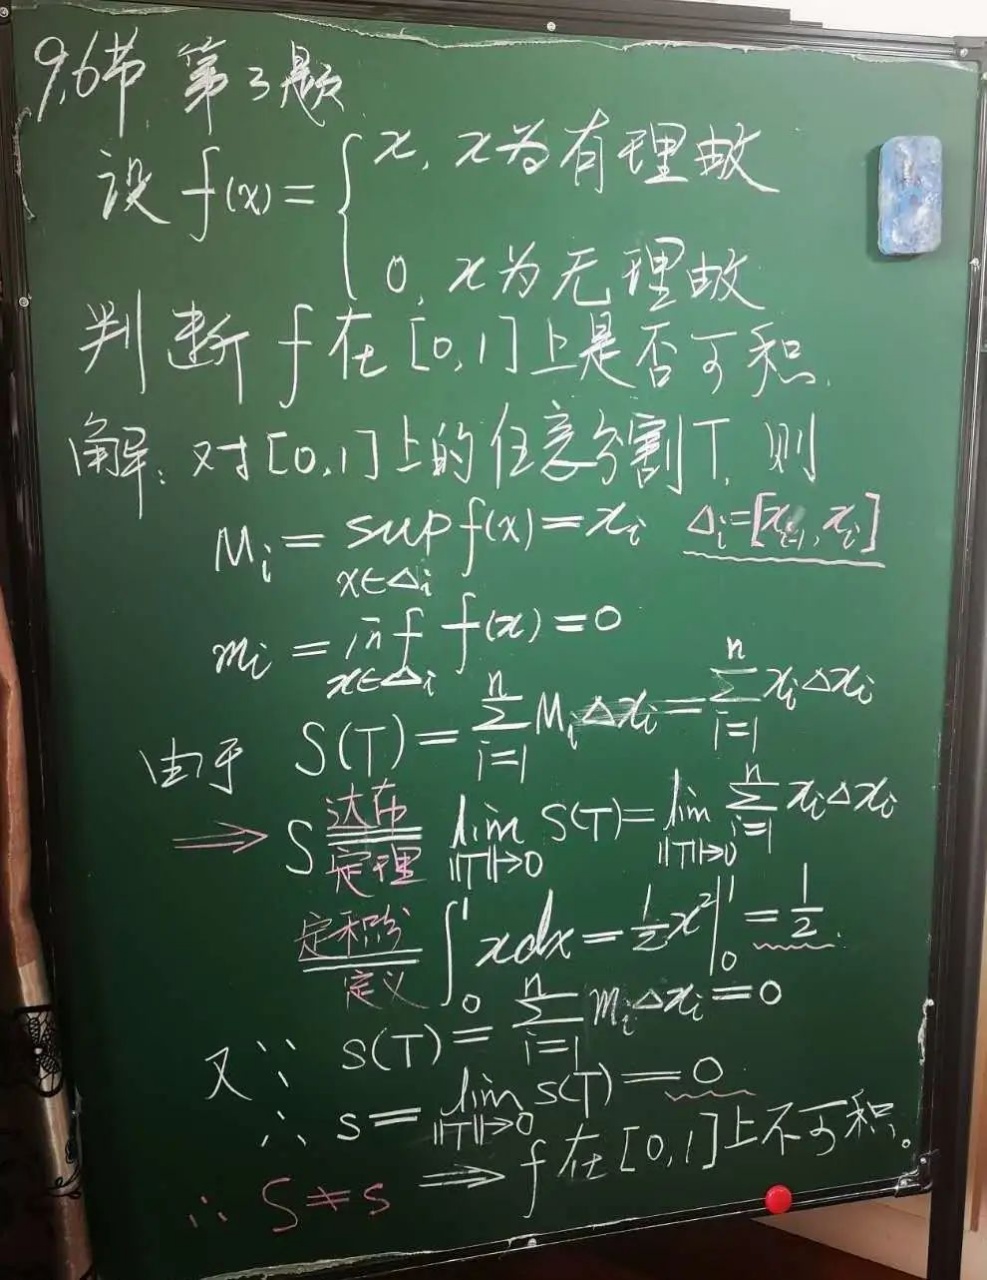 9.6节 第3题
设 f(x) = { x, x为有理数
0, x为无理数
判断 f 在 [0,1] 上是否可积.
解: 对[0,1]上的任意分割T, 则
M_i = sup_{x∈Δ_i} f(x) = x_i Δ_i = [x_{i-1}, x_i]
m_i = inf_{x∈Δ_i} f(x) = 0
由于 S(T) = ∑_{i=1}^{n} M_i Δx_i = ∑_{i=1}^{n} x_i Δx_i
⟹ S 达布定理 = lim_{‖T‖→0} S(T) = lim_{‖T‖→0} ∑_{i=1}^{n} x_i Δx_i
定积分定义 = ∫_0^1 x dx = 1/2 x² |_0^1 = 1/2.
又∵ s(T) = ∑_{i=1}^{n} m_i Δx_i = 0
∴ s = lim_{‖T‖→0} s(T) = 0
∴ S ≠ s ⟹ f 在 [0,1] 上不可积。